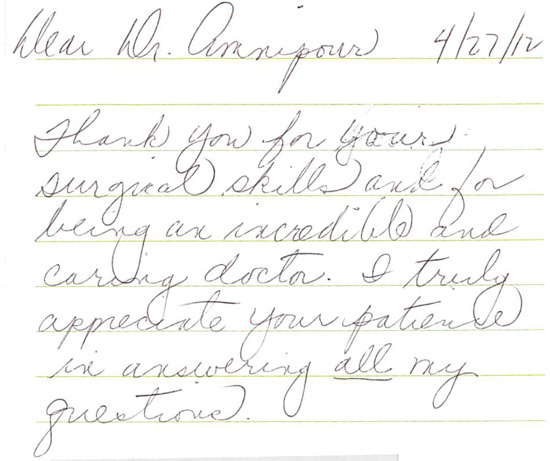 Dear Dr. Amnipour 4/27/12
Thank you for your
surgical skills and for
being an incredible and
caring doctor. I truly
appreciate your patience
in answering all my
questions.